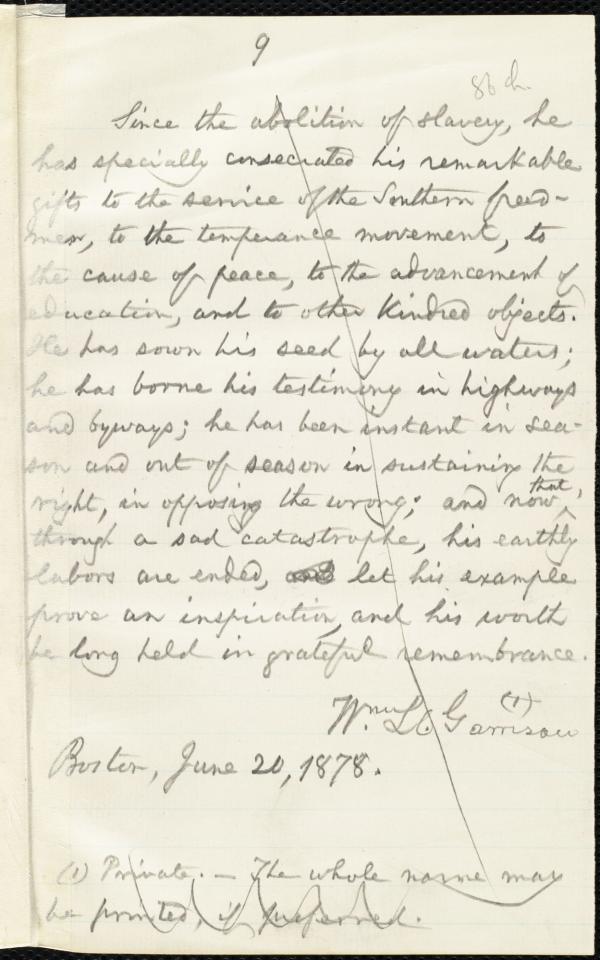 9
86 ch.
Since the abolition of slavery, he
has specially consecrated his remarkable
gifts to the service of the Southern freed-
men, to the temperance movement, to
the cause of peace, to the advancement of
education, and to other kindred objects.
He has sown his seed by all waters;
he has borne his testimony in highways
and byways; he has been instant in sea-
son and out of season in sustaining the
right, in opposing the wrong; and now that,
through a sad catastrophe, his earthly
labors are ended, and let his example
prove an inspiration, and his worth
be long held in grateful remembrance.
Wm. L. Garrison (1)
Boston, June 20, 1878.
(1) Private. — The whole name may
be printed, if preferred.